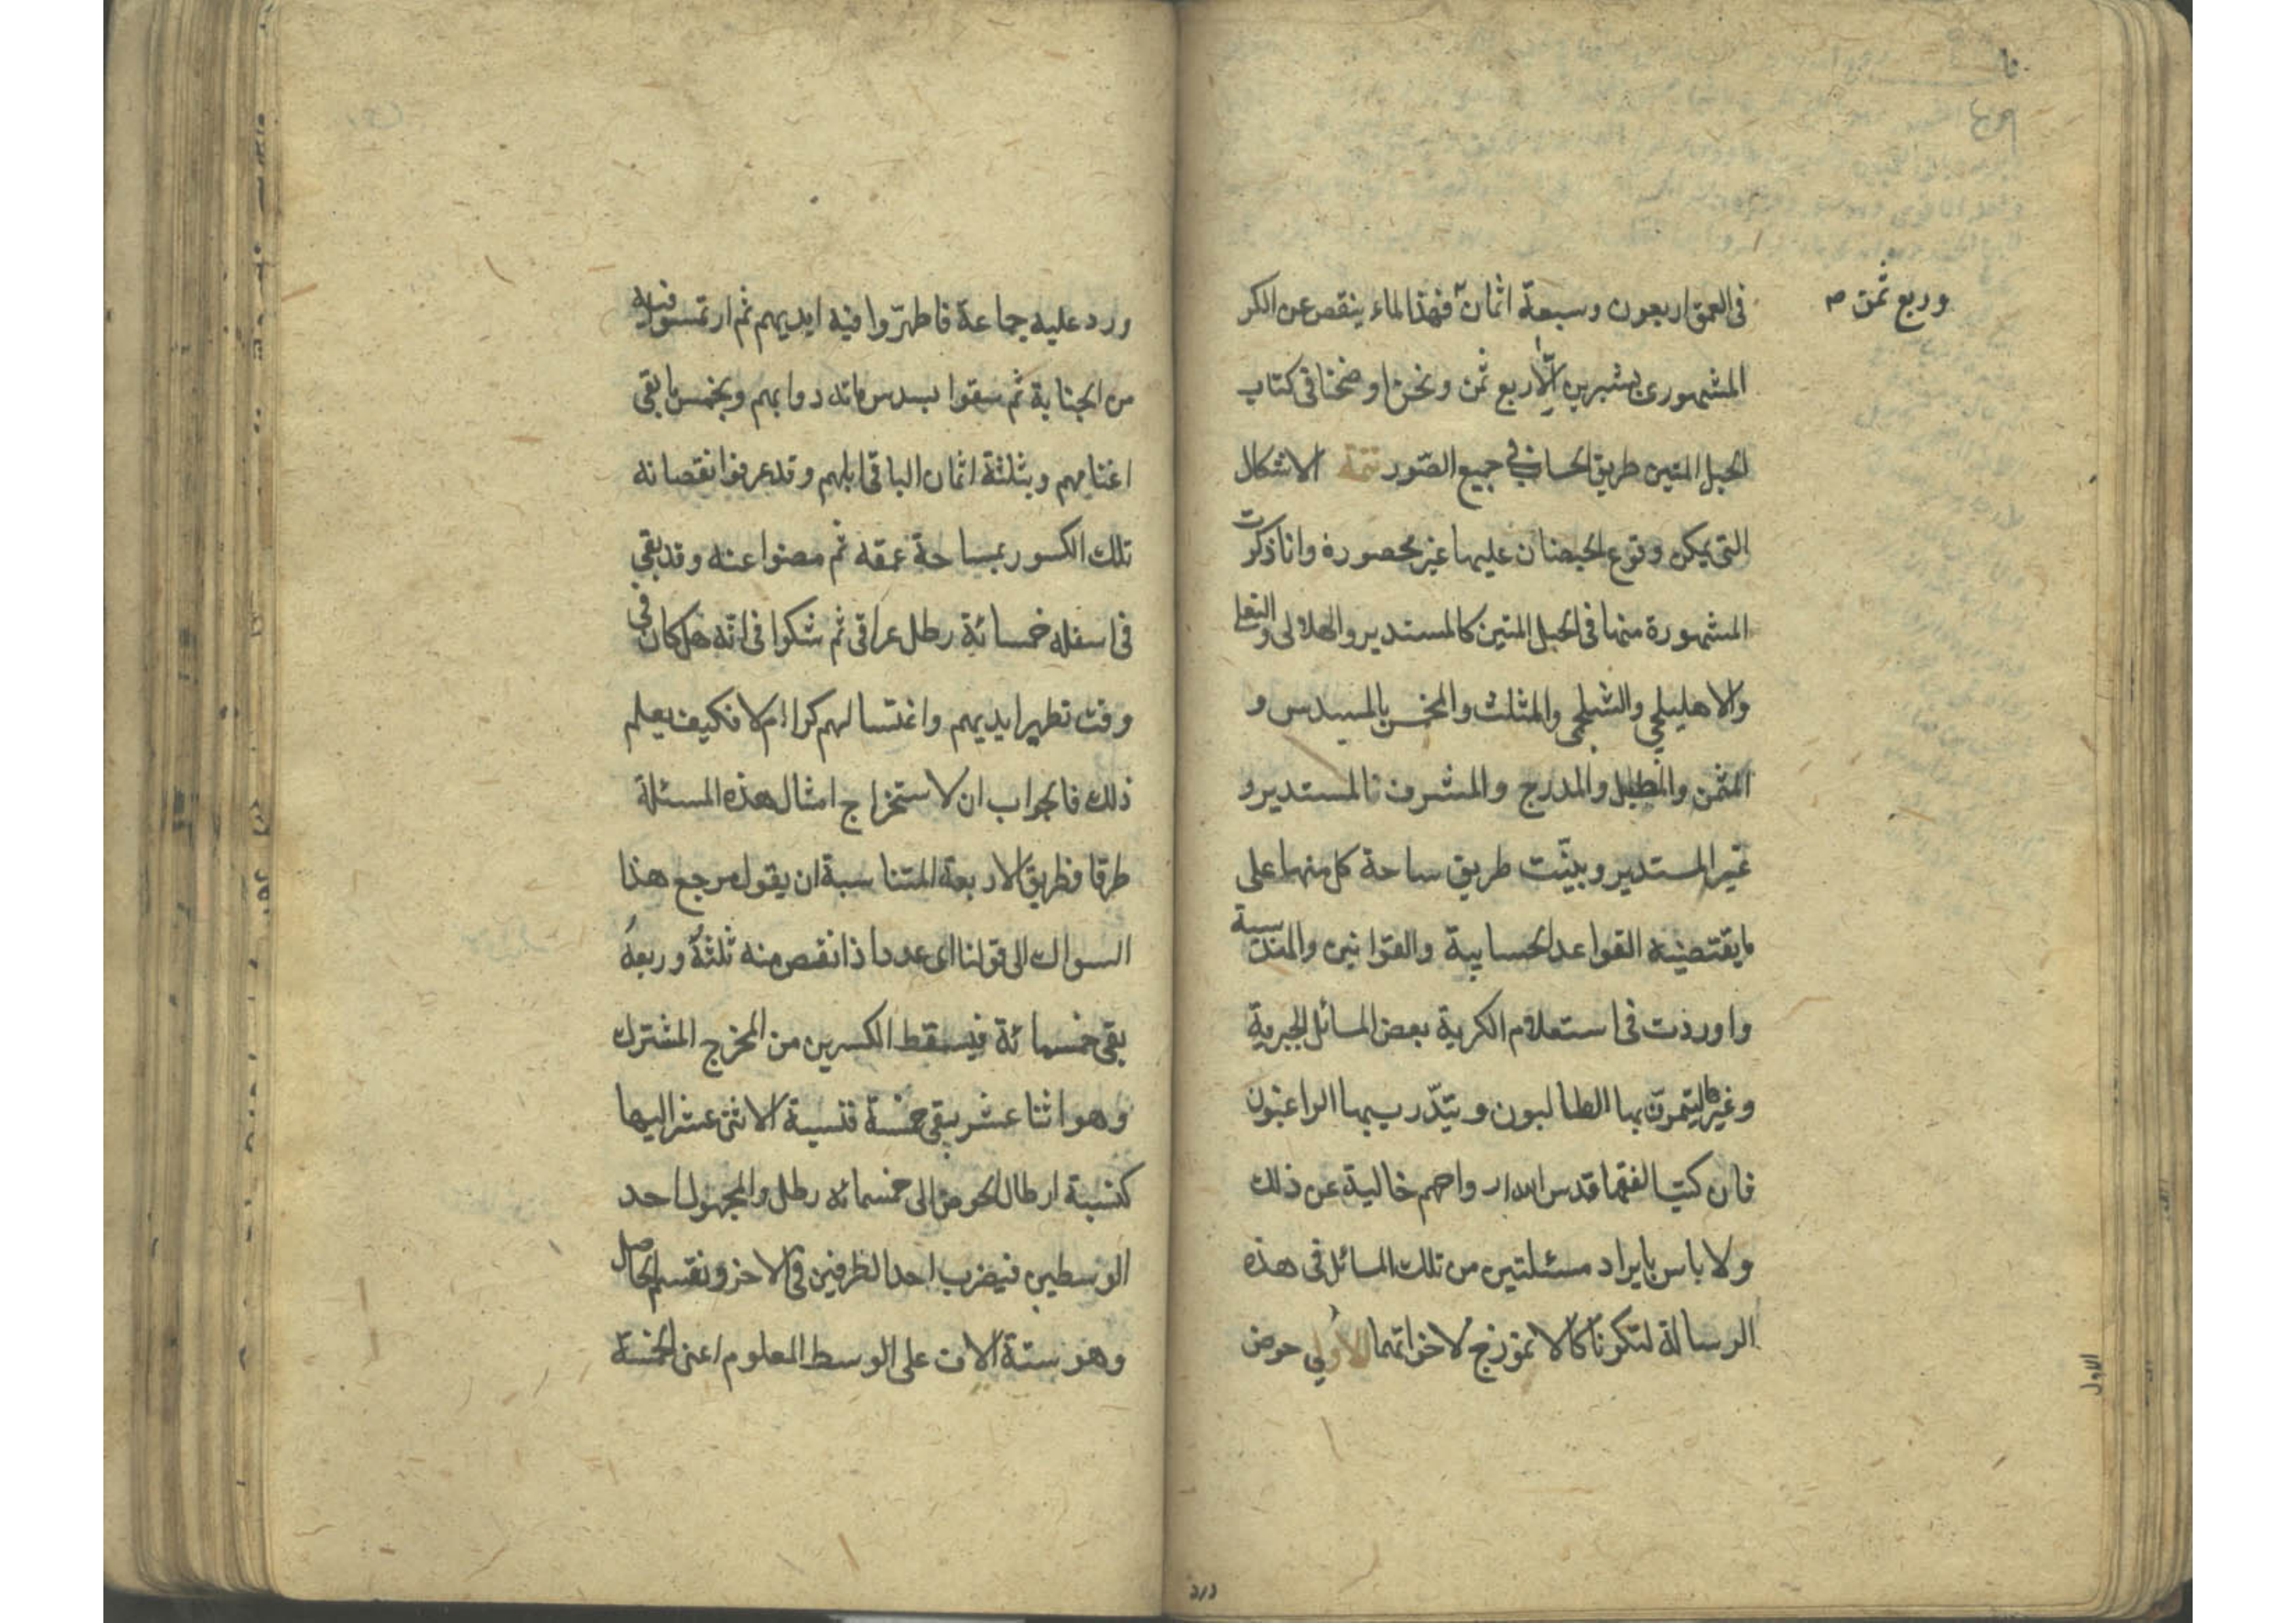 وربع ثمن صح
فى العمق اربعون وسبعة اثمان فهذا لماء ينقص عن الكر
المشهورى بشبرين الّا ربع ثمن ونحن اوضحنا فى كتاب
الحبل المتين طريق الحساب فى جميع الصّور تتمة الاشكال
التى يمكن وقوع الحيضان عليها غير محصورة وانا ذكرت
المشهورة منها فى الحبل المتين كالمستدير والهلالى والنعلى
والاهليلجى والشلجمى والمثلث والمخمس والمسدس و
المثمن والمطبل والمدرج والمشرف ذالمستدير و
غير المستدير وبيّنت طريق مساحة كل منها على
ما يقتضيه القواعد الحسابية والقوانين والهندسية
واوردت فى استعلام الكرية بعض المسائل الجبرية
وغيرها ليتمرّن بها الطالبون ويتدّرب بها الراغبون
فان كتب الفقها قدس الله ارواحهم خالية عن ذلك
ولا باس بايراد مسئلتين من تلك المسائل فى هذه
الرسالة لتكونا كالانموزج لاخواتهما الاولى حوض
ورد عليه جماعة فاطهرّوا فيه ايديهم ثم ارتمسوا فيه
من الجنابة ثم سقوا بسدس مائه دوابهم وبخمس ما بقى
اغنامهم وبثلثة اثمان الباقى ابلهم وقد عرفوا نقصانه
تلك الكسور بمساحة عمقه ثم مضوا عنه وقد بقى
فى اسفله خمسائة رطل عراقى ثم شكوا فى انّه هل كان فى
وقت تطهير ايديهم واغتسالهم كرا ام لا فكيف يعلم
ذلك فالجواب ان لاستخراج امثال هذه المسئلة
طرقا فطريق الاربعة المتناسبة ان يقول مرجع هذا
السوال الى قولنا اى عدد اذا نقص منه ثلثهُ وربعهُ
بقى خمسمائة فيسقط الكسرين من المخرج المشترك
وهو اثنا عشر يبقى خمسة فنسبة الاثنى عشر اليها
كنسبة ارطال الحوض الى خمسمائه رطل والمجهول احد
الوسطين فيضرب احد الطرفين فى الاخر ونقسم الحاصل
وهو ستة الاف على الوسط المعلوم اعنى الخمسة